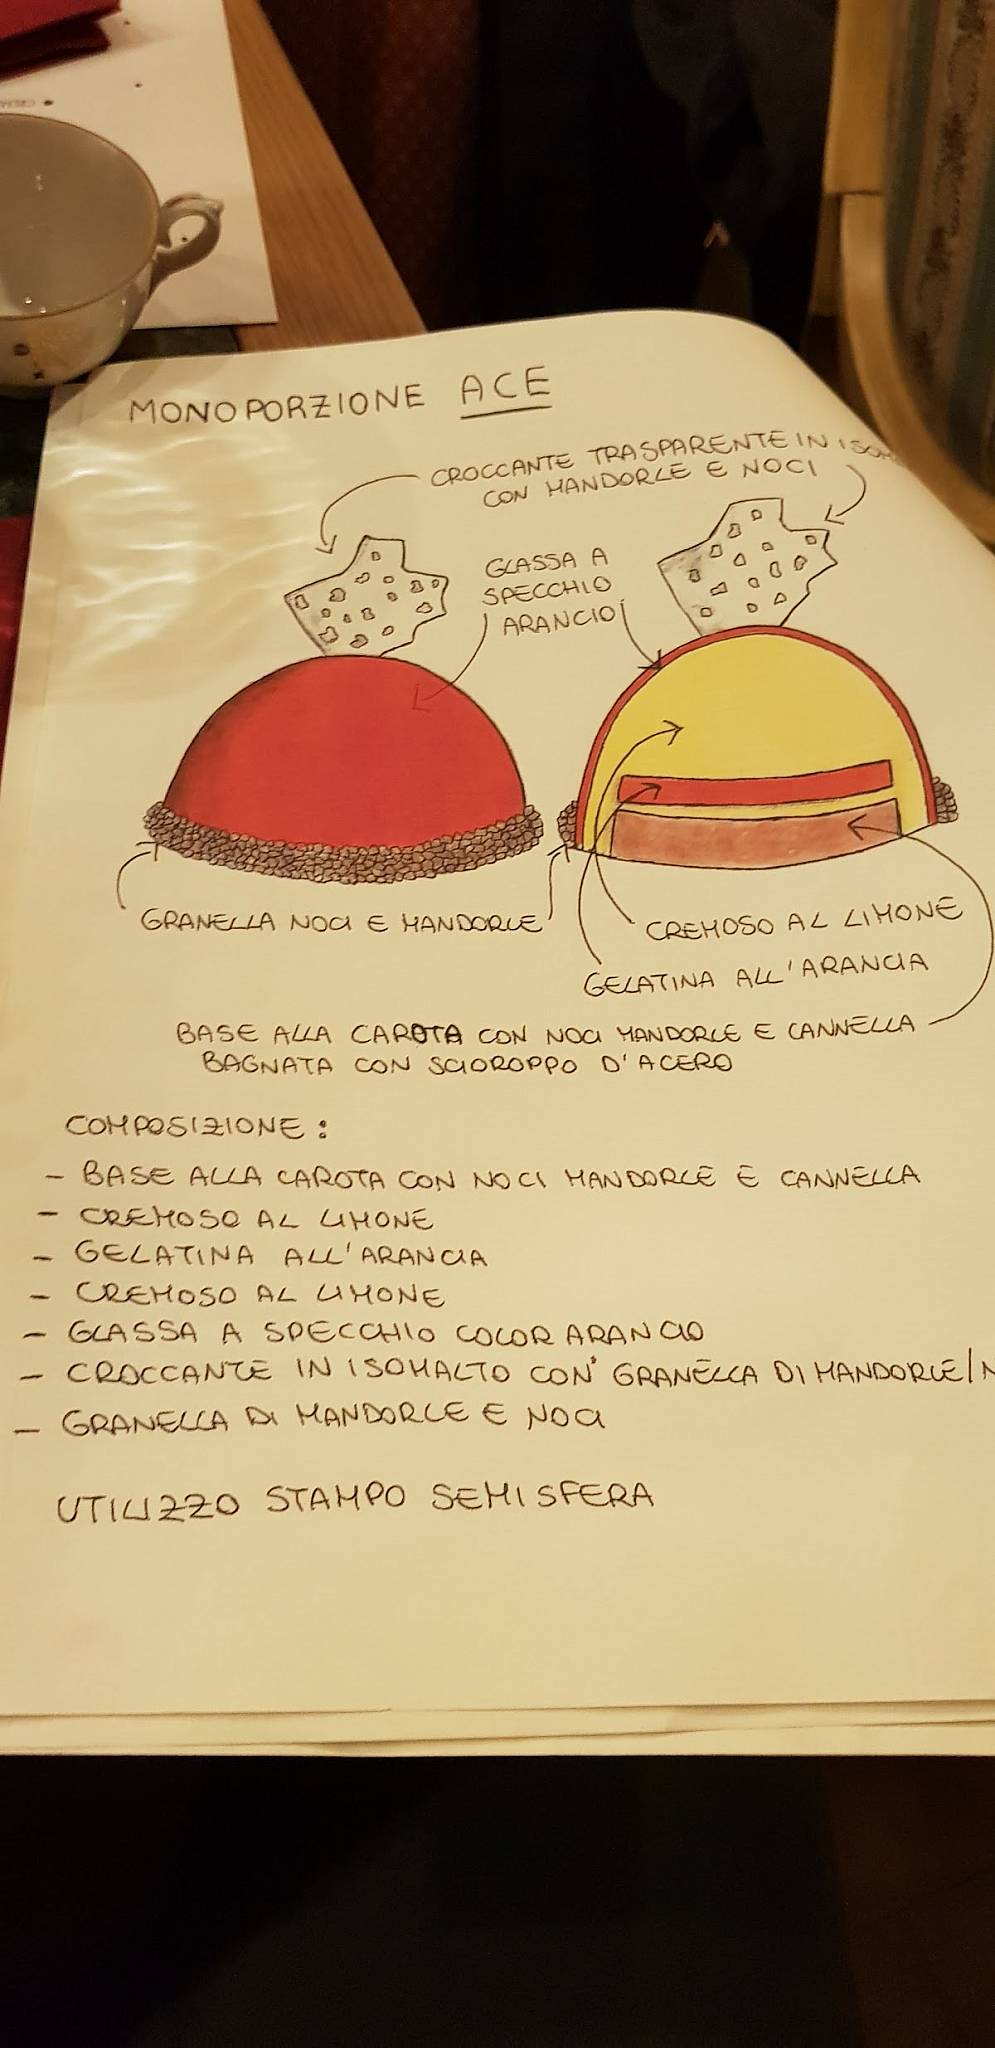 MONOPORZIONE ACE
CROCCANTE TRASPARENTE IN
CON MANDORLE E NOCI
GLASSA A
SPECCHIO
ARANCIO
GRANELLA NOCI E MANDORLE
CREMOSO AL LIMONE
GELATINA ALL'ARANCIA
BASE ALLA CAROTA CON NOCI MANDORLE E CANNELLA
BAGNATA CON SCIOROPPO D'ACERO
COMPOSIZIONE:
- BASE ALLA CAROTA CON NOCI MANDORLE E CANNELLA
- CREMOSO AL LIMONE
- GELATINA ALL'ARANCIA
- CREMOSO AL LIMONE
- GLASSA A SPECCHIO COLOR ARANCIO
- CROCCANTE IN ISOMALTO CON GRANELLA DI MANDORLE/N
- GRANELLA DI MANDORLE E NOCI
UTILIZZO STAMPO SEMISFERA